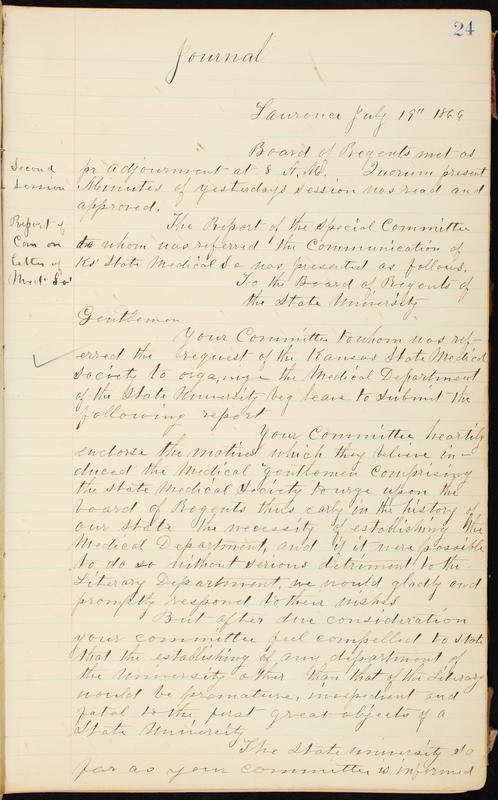 24
Journal
Lawrence July 19" 1866
Board of Regents met as
Second
Session
pr adjournment at 8 A.M. Quorum present
Minutes of yesterdays session was read and
approved.
Report of
Com on
Letter of
Med. So'
The Report of the Special Committee
to whom was referred the Communication of
Ks' State Medical So was presented as follows.
To the Board of Regents of
the State University
Gentlemen
Your Committee to whom was ref-
erred the request of the Kansas State Medical
Society to organize the Medical Department
of the State University beg leave to submit the
following report
Your Committee heartily
endorse the motive which they believe in-
duced the Medical gentlemen comprising
the State Medical Society to urge upon the
board of Regents thus early in the history of
our state the necessity of establishing the
Medical Department, and if it were possible
to do so without serious detriment to the
Literary Department, we would gladly and
promptly respond to their wishes
But after due consideration
your committee feel compelled to state
that the establishing of any department of
the University other than that of the Literary
would be premature, inexpedient and
fatal to the first great objects of a
State University
The State University so
far as your committee is informed